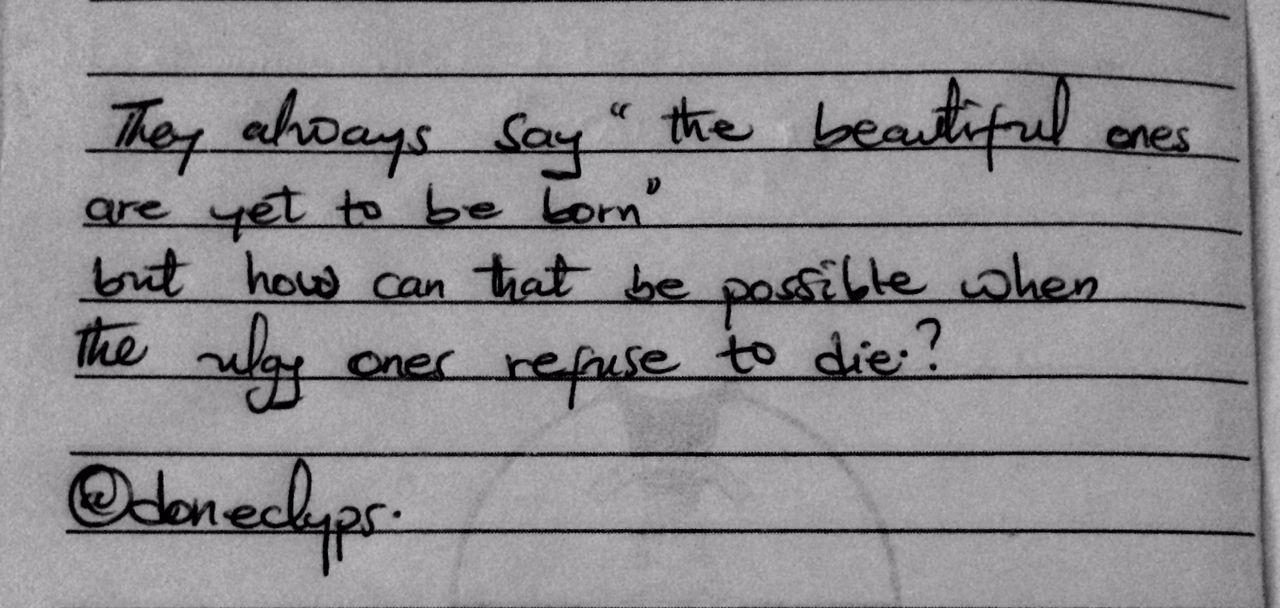 They always say "the beautiful ones
are yet to be born"
but how can that be possible when
the ulgy ones refuse to die.?
@doneclyps.